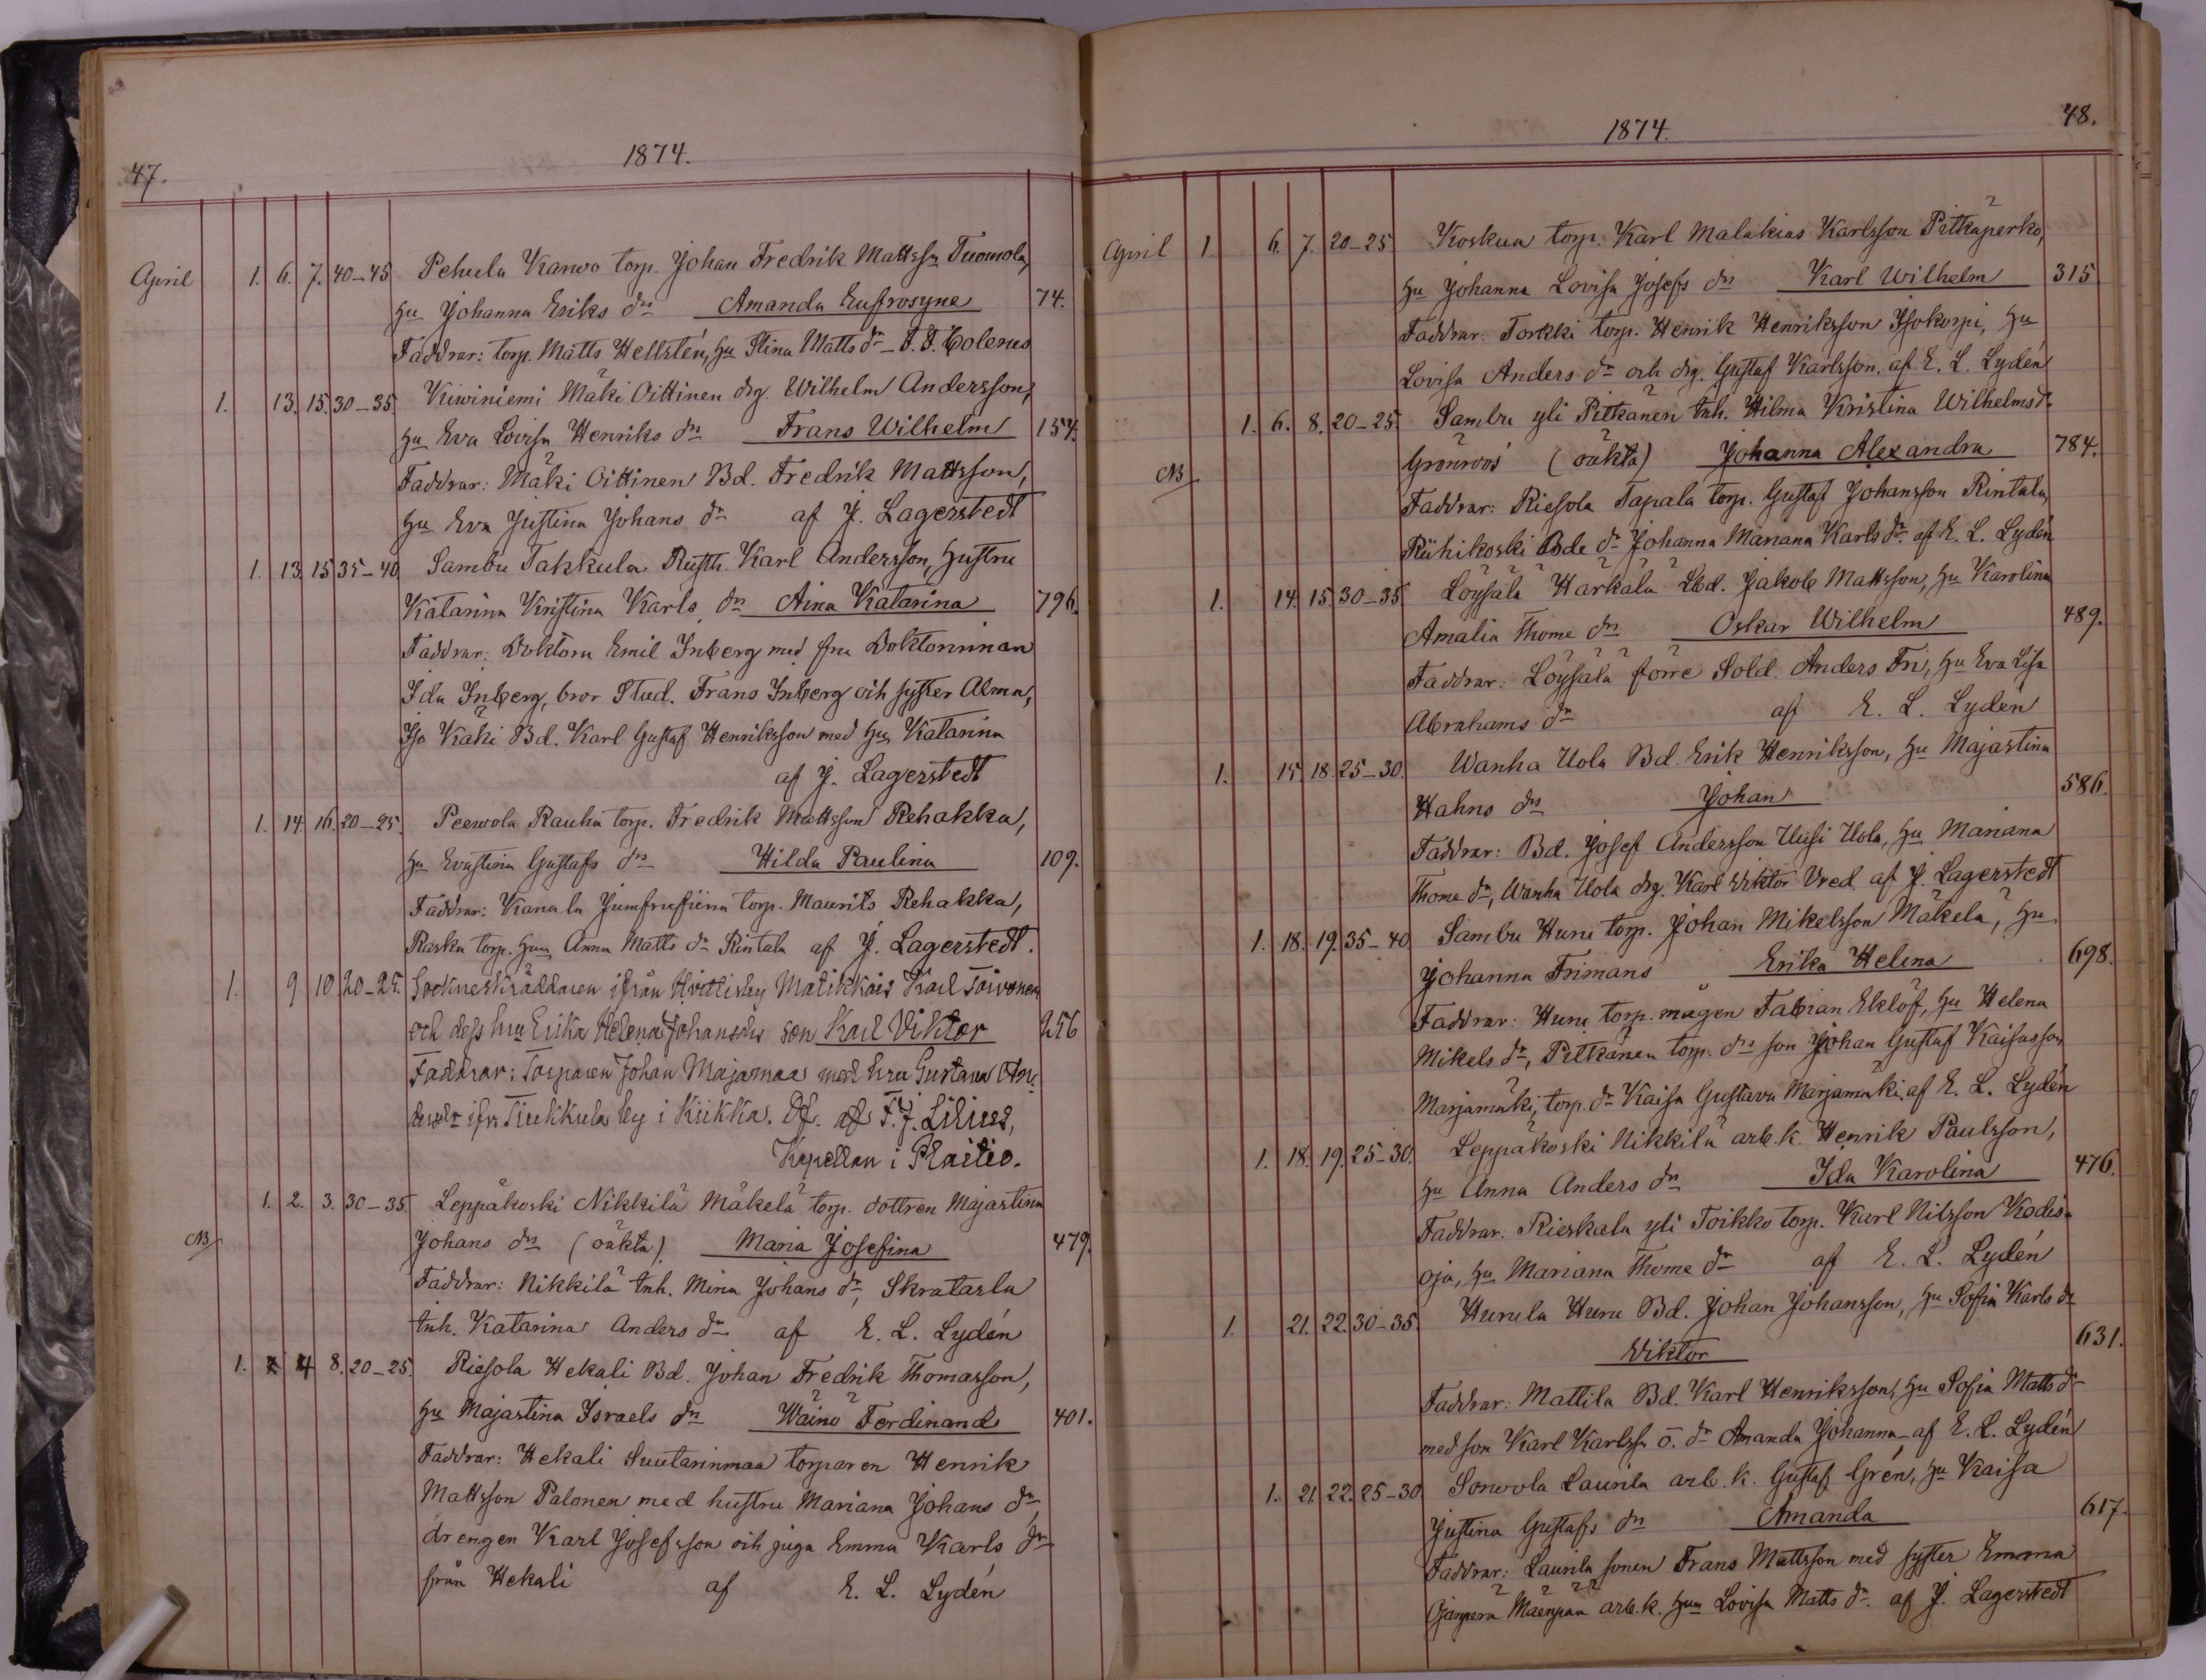 47.
1874.
April 1. 6. 7. 40-45 Pehula Karwo torp. Johan Fredrik Mattsson Tuomola,
Hu Johanna Eriks dr Amanda Eufrosyne 74.
Faddrar: torp. Matts Hellstén, Hu Stina Matts dr - J. F. Tolenus
1. 13. 15. 30-35 Kiwiniemi Mäki Oittinen drg. Wilhelm Andersson,
Hu Eva Lovisa Henriks dr Frans Wilhelm 154.
Faddrar: Mäki Oittinen Bd. Fredrik Mattsson,
Hu Eva Justina Johans dr af J. Lagerstedt
1. 13. 15. 35-40 Sambu Takkula Rusth. Karl Andersson, Hustru
Katarina Kristina Karls dr Aina Katarina 796.
Faddrar: Doktorn Emil Inberg med fru Doktorinnan
Ida Inberg, bror Stud. Frans Inberg och syster Alma,
Iso Käki Bd. Karl Gustaf Henriksson med Hu Katarina
af J. Lagerstedt
1. 14. 16. 20-25. Peewola Rauha torp. Fredrik Mattsson Rehakka,
Hu Evastina Gustafs dr Hilda Paulina 109.
Faddrar: Kanala torp. Maurits Rehakka,
Raska torp. Hun Anna Matts dr Rintala af J. Lagerstedt.
1. 9 10. 20-25. Sockneskräddaren ifrån Hvittisby Matikkais Karl Toivonen
och dess hru Erika Helena Johansdr son Karl Viktor 256
Faddrar: Torparen Johan Majamaa med hru Gustava An-
dersdr ifr. Tiukkula by i Kiikka. Df. af F. J. Lilius,
Kapellan i
1. 2. 3. 30-35. Leppäkoski Nikkilä Mäkelä torp. dottren Majastina
NB Johans dr (oäkta) Maria Josefina 479.
Faddrar: Nikkilä tnh. Mina Johans dr, Skratasla
tnh. Katarina Anders dr af E. L. Lydén
1. 4 8. 20-25. Riesola Hekali Bd. Johan Fredrik Thomasson,
Hu Majastina Israels dr Wäinö Ferdinand 401.
Faddrar: Hekali Suutarinmaa torparen Henrik
Mattsson Palonen med hustru Mariana Johans dr,
drengen Karl Josefsson och piga Emma Karls dr
från Hekali af E. L. Lydén
48.
1874.
April 1. 6. 7. 20-25 Koskua torp. Karl Malakias Karlsson Pitkäperko,
Hu Johanna Lovisa Josefs dr Karl Wilhelm 315
Faddrar: Torkki torp. Henrik Henriksson Isokorpi, Hu
Lovisa Anders dr och drg. Gustaf Karlsson. af E. L. Lydén
1. 6. 8. 20-25. Sambu yli Pitkänen tnh. Hilma Kristina Wilhelmsdr
NB Grönroos (oäkta) Johanna Alexandra 784.
Faddrar: Riesola Tapala torp. Gustaf Johansson Rintala,
Riihikoski Bde dr Johanna Mariana Karls dr. af E. L. Lydén
1. 14. 15. 30-35 Löysälä Härkälä Lbd. Jakob Mattsson, Hu Karolina
Amalia Thome dr Oskar Wilhelm 489.
Faddrar: Löysälä förre Sold. Anders Fri, Hu Eva Lisa
Abrahams dr af E. L. Lydén
1. 15. 18. 25-30. Wanha Uola Bd. Erik Henriksson, Hu Majastina
Hahns dr Johan 586.
Faddrar: Bd. Josef Andersson Uusi Uola, Hu Mariana
Thome dr, Wanha Uola drg. Karl Viktor Vred. af J. Lagerstedt
1. 18. 19. 35-40 Sambu Huru torp. Johan Mikelsson Mäkelä, Hu
Johanna Frimans Erika Helena 698.
Faddrar: Huru torp. mågen Fabian Eklöf, Hu Helena
Mikels dr, Pitkänen torp. drs son Johan Gustaf Kaisasson
Marjamäki, torp. dr Kaisa Gustava Marjamäki. af E. L. Lydén
1. 18. 19. 25-30. Leppäkoski Nikkilä arb.k. Henrik Paulsson,
Hu Anna Anders dr Ida Karolina 476.
Faddrar: Rieskala yli Toikko torp. Karl Nilsson Kodis-
oja, Hu Mariana Thome dr af E. L. Lydén
1. 21. 22. 30-35. Hurula Huru Bd. Johan Johansson, Hu Sofia Karls dr
Viktor 631.
Faddrar: Mattila Bd. Karl Henriksson, Hu Sofia Matts dr
med son Karl Karlsson o. dr Amanda Johanna - af E. L. Lydén
1. 21. 22. 25-30 Sorwola Laurila arb.k. Gustaf Grén, Hu Kaisa
Justina Gustafs dr Amanda 617.
Faddrar: Laurila sonen Frans Mattsson med syster Emma
Ojanperä Mäenpää arb.k. Hun Lovisa Matts dr. af J. Lagerstedt